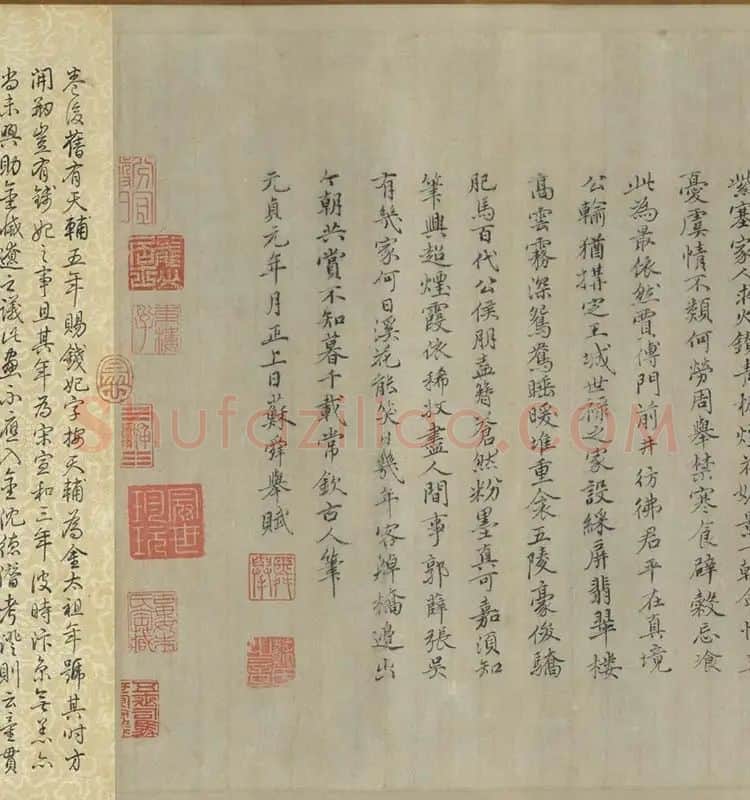 紫塞家人
憂虞情不類何勞周舉禁寒食辟穀忌飡
此為最依然賈傅門前井彷彿君平在真境
公輪猶搆定王城世祿之家設綵屏翡翠樓
高雲霧深鴛鴦睡暖進重衾五陵豪俊驕
肥馬百代公侯朋盍簪蒼然粉墨真可嘉須知
筆興超煙霞依稀收盡人間事郭薛張吳
有幾家何日溪花能笑日幾年客棹檣邊出
今朝共賞不知暮千載常欽古人筆
元貞元年月正上日蘇舜舉賦
卷後舊有天輔五年賜錢妃字按天輔為金太祖年號其時方
開朔豈有錢妃之事且其年為宋宣和三年彼時汴京無恙亦
尚未與助金滅遼之議此畫不應入金沈德潛考證則云童貫
Shufaziliao.COM